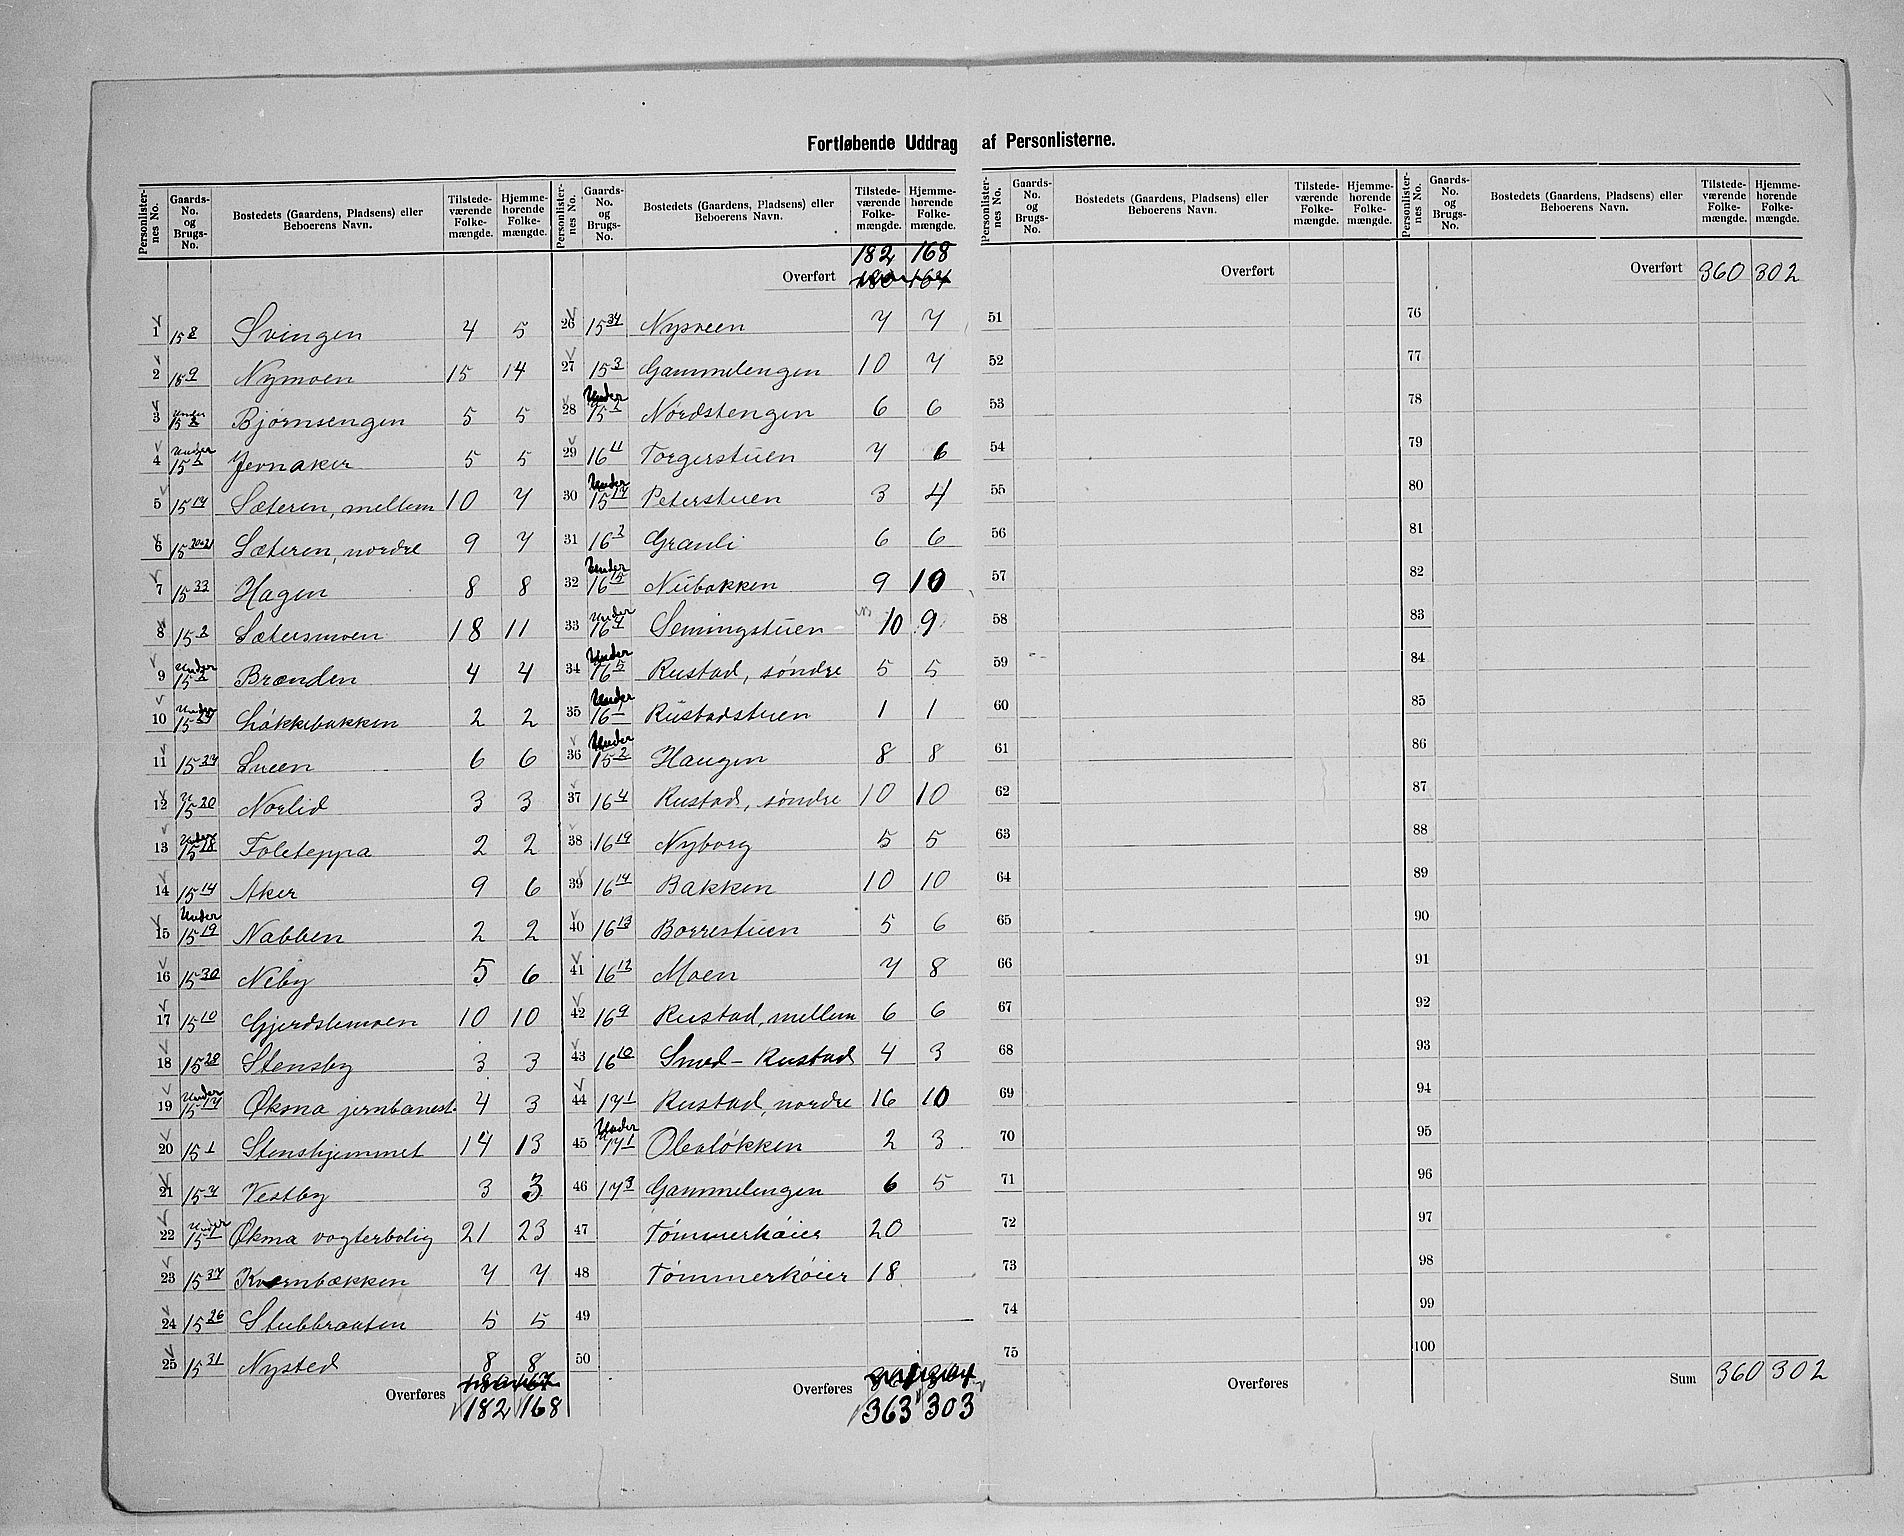 Fortløbende Uddrag af Personlisterne.
Personlisternes No. | Gaards-No. og Brugs-No. | Bostedets (Gaardens, Pladsens) eller Beboerens Navn. | Tilstedeværende Folkemængde. | Hjemmehørende Folkemængde.
1 | 15 8 | Svingen | 4 | 5
2 | 15 9 | Nymoen | 15 | 14
3 | Under 15 2 | Bjørnsengen | 5 | 5
4 | Under 15 2 | Jernaker | 5 | 5
5 | 15 17 | Sæteren, mellem | 10 | 7
6 | 15 20+21 | Sæteren, nordre | 9 | 7
7 | 15 33 | Hagen | 8 | 8
8 | 15 2 | Sætersmoen | 18 | 11
9 | Under 15 2 | Brænden | 4 | 4
10 | Under 15 | Løkkebakken | 2 | 2
11 | 15 27 | Sveen | 6 | 6
12 | 15 20 | Norlid | 3 | 3
13 | Under 15 18 | Foleteppa | 2 | 2
14 | 15 14 | Aker | 9 | 6
15 | Under 15 19 | Nabben | 2 | 2
16 | 15 30 | Neby | 5 | 6
17 | 15 10 | Gjerdslemoen | 10 | 10
18 | 15 28 | Stensby | 3 | 3
19 | Under 15 17 | Øksna jernbanest. | 4 | 3
20 | 15 1 | Stenshjemmet | 14 | 13
21 | 15 7 | Vestby | 3 | 3
22 | Under 15 1 | Øksna vogterbolig | 21 | 23
23 | 15 37 | Kvernbækken | 7 | 7
24 | 15 26 | Stubbraaten | 5 | 5
25 | 15 31 | Nysted | 8 | 8
Overføres | 182 | 168
Personlisternes No. | Gaards-No. og Brugs-No. | Bostedets (Gaardens, Pladsens) eller Beboerens Navn. | Tilstedeværende Folkemængde. | Hjemmehørende Folkemængde.
182 | 168
Overført | 180 | 164
26 | 15 34 | Nysveen | 7 | 7
27 | 15 3 | Gammelengen | 10 | 7
28 | Under 15 2 | Nordstengen | 6 | 6
29 | 16 11 | Torgerstuen | 7 | 6
30 | Under 15 17 | Peterstuen | 3 | 4
31 | 16 2 | Granli | 6 | 6
32 | Under 16 15 | Nubakken | 9 | 10
33 | Under 16 7 | Semingstuen | 10 | 9
34 | Under 16 5 | Rustad, søndre | 5 | 5
35 | Under 16 1 | Rustadstuen | 1 | 1
36 | Under 15 2 | Haugen | 8 | 8
37 | 16 4 | Rustad, søndre | 10 | 10
38 | 16 19 | Nyborg | 5 | 5
39 | 16 14 | Bakken | 10 | 10
40 | 16 13 | Borrestuen | 5 | 6
41 | 16 12 | Moen | 7 | 8
42 | 16 9 | Rustad, mellem | 6 | 6
43 | 16 10 | Smed-Rustad | 4 | 3
44 | 17 1 | Rustad, nordre | 16 | 10
45 | Under 17 1 | Olaløkken | 2 | 3
46 | 17 3 | Gammelengen | 6 | 5
47 | Tømmerkøier | 20
48 | Tømmerkøier | 18
49
50
Overføres | 363 | 303
Personlisternes No. | Gaards-No. og Brugs-No. | Bostedets (Gaardens, Pladsens) eller Beboerens Navn. | Tilstedeværende Folkemængde. | Hjemmehørende Folkemængde.
Overført
51
52
53
54
55
56
57
58
59
60
61
62
63
64
65
66
67
68
69
70
71
72
73
74
75
Overføres
Personlisternes No. | Gaards-No. og Brugs-No. | Bostedets (Gaardens, Pladsens) eller Beboerens Navn. | Tilstedeværende Folkemængde. | Hjemmehørende Folkemængde.
Overført | 360 | 302
76
77
78
79
80
81
82
83
84
85
86
87
88
89
90
91
92
93
94
95
96
97
98
99
100
Sum | 360 | 302